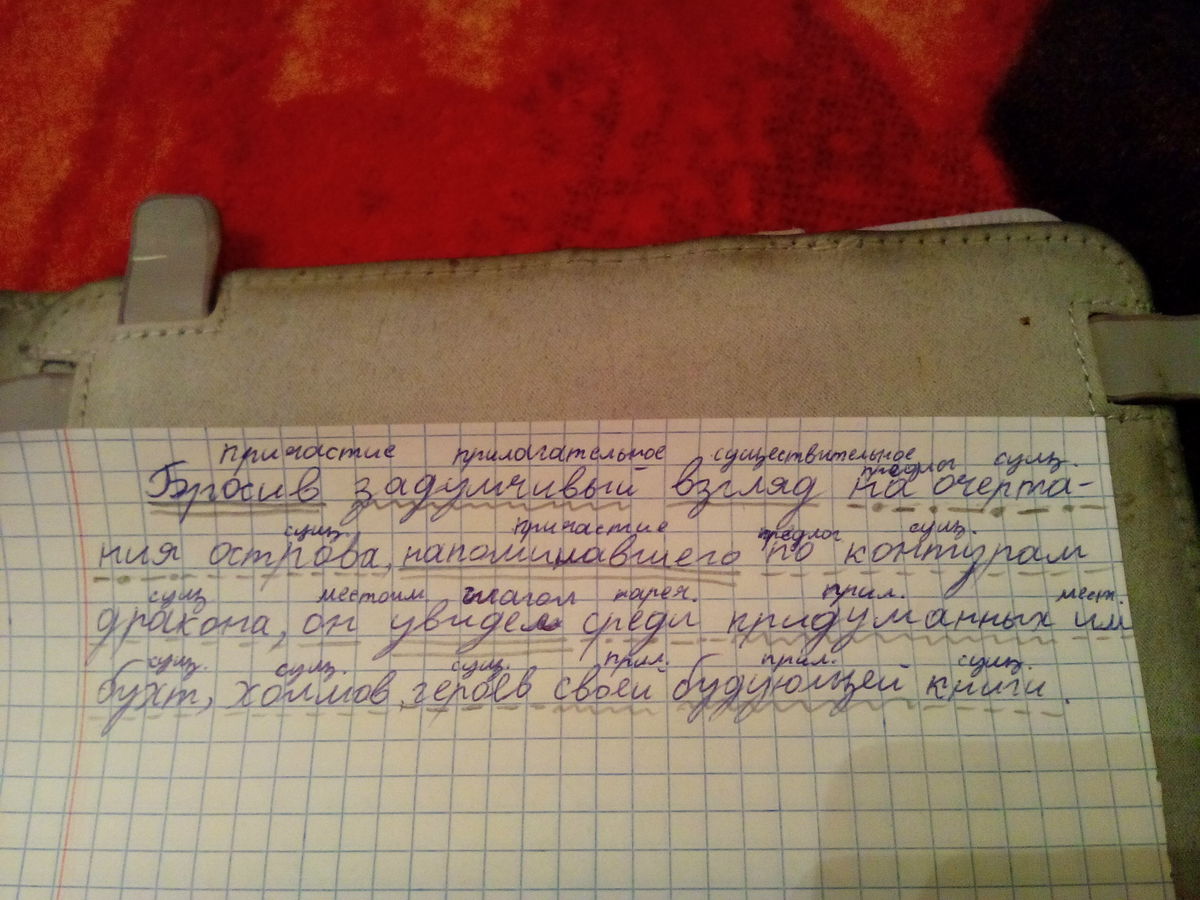 причастие прилагательное существительное предлог сущ.
Бросив задумчивый взгляд на очерта-
сущ. причастие предлог сущ.
ния острова, напоминавшего по контурам
сущ местоим глагол нареч. прил. мест.
дракона, он увидел среди придуманных им
сущ. сущ. сущ. прил. прил. сущ.
бухт, холмов, героев своей будующей книги.